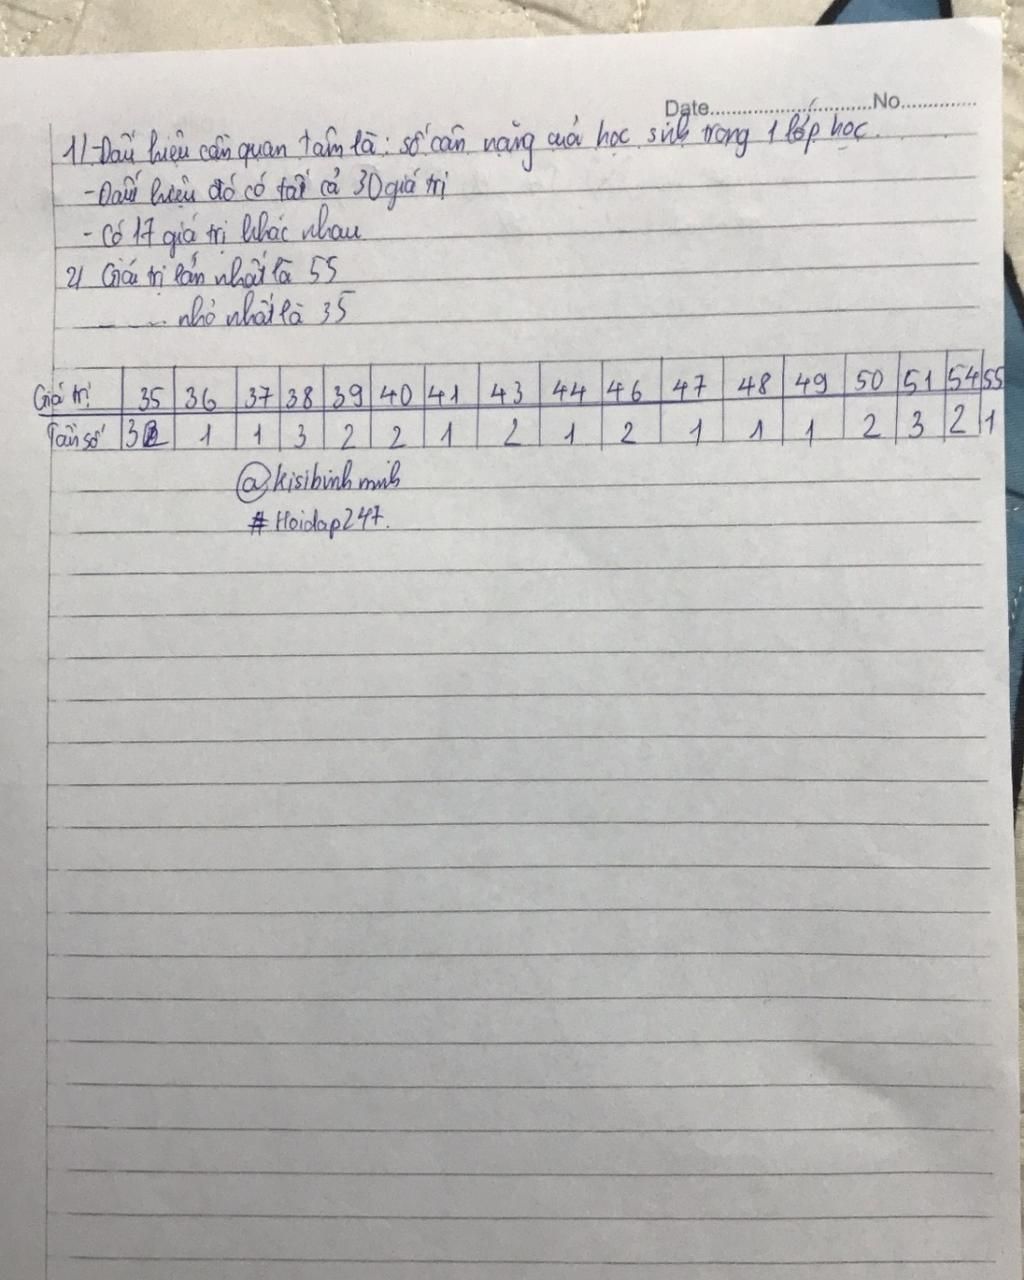 Date.....................No.............
1) - Dấu hiệu cần quan tâm là: số cân nặng của học sinh trong 1 lớp học.
- Dấu hiệu đó có tất cả 30 giá trị
- Có 17 giá trị khác nhau
2) Giá trị lớn nhất là 55
nhỏ nhất là 35
Giá trị 35 36 37 38 39 40 41 43 44 46 47 48 49 50 51 54 55
Tần số 3 1 1 3 2 2 1 2 1 2 1 1 1 2 3 2 1
@kisibinhminh
#Hoidap247.